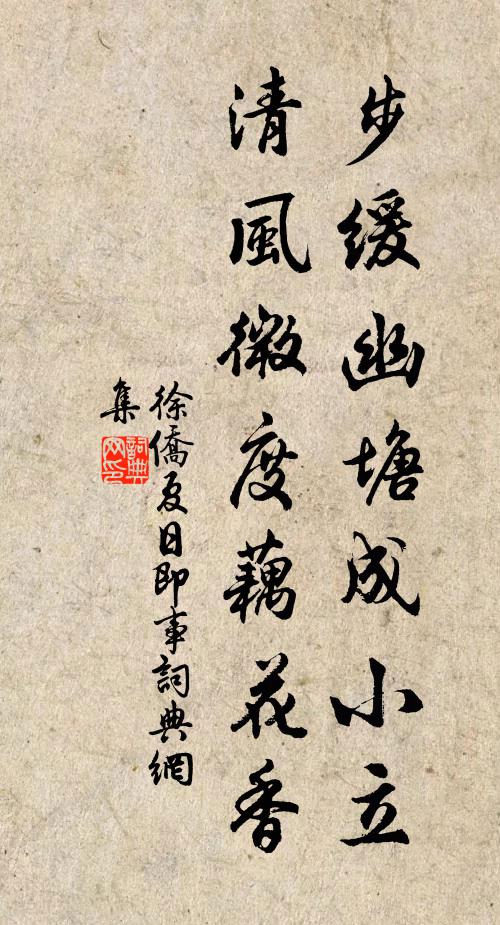 步緩幽塘成小立
清風微度藕花香
徐僑夏日即事詞典網
集
詞典
网印